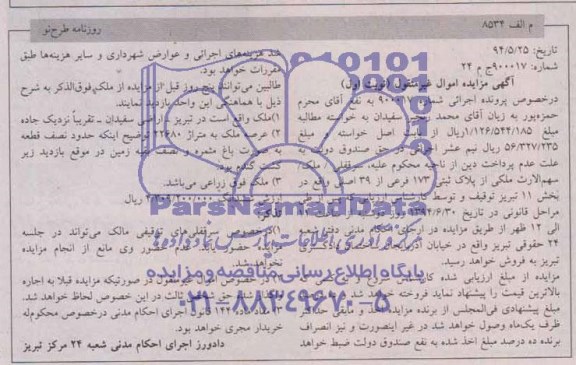 م الف ۸۵۳۴
روزنامه طرح‌نو
تاریخ: ۹۴/۵/۲۵
شماره: ۹۰۰۰۱۷ج م ۲۴
آگهی مزایده اموال غیرمنقول (نوبت اول)
درخصوص پرونده اجرائی شماره ۹۰۰۰۱۷ به نفع آقای محرم
حمزه‌پور به زیان آقای محمد رنجبر سفیدان به خواسته مطالبه
مبلغ ۱/۱۲۶/۵۴۴/۱۸۵ریال از بابت اصل خواسته و مبلغ
۵۶/۳۲۷/۲۳۵ ریال نیم عشر اجرائی در حق صندوق دولت به
علت عدم پرداخت دین از ناحیه محکوم علیه، سرقفلی / ملک/
سهم‌الارث ملکی از پلاک ثبتی ۱۷۳ فرعی از ۳۹ اصلی واقع در
بخش ۱۱ تبریز توقیف و توسط
مراحل قانونی در تاریخ ۱۳۹۴/۶/۳۰
الی ۱۲ ظهر از طریق مزایده در اجرای احکام مدنی دفتر شعبه
۲۴ حقوقی تبریز واقع در خیابان آذربایجان دادگستری
تبریز به فروش خواهد رسید.
مزایده از مبلغ ارزیابی شده کارشناس شروع و به کسی که
بالاترین قیمت را پیشنهاد نماید فروخته خواهد شد
مبلغ پیشنهادی فی‌المجلس از برنده مزایده اخذ و مابقی حداکثر
ظرف یک‌ماه وصول خواهد شد در غیر اینصورت و نیز انصراف
برنده ده درصد مبلغ اخذ شده به نفع صندوق دولت ضبط خواهد
شد هزینه‌های اجرائی و عوارض شهرداری و سایر هزینه‌ها طبق
مقررات خواهد بود.
طالبین می‌توانند پنج روز قبل از مزایده از ملک فوق‌الذکر به شرح
ذیل با هماهنگی این واحد بازدید نمایند.
۱) ملک واقع است در تبریز، اراضی سفیدان ـ تقریباً نزدیک جاده
۲) عرصه ملک به متراژ ۲۲۶۸۰ توضیح اینکه حدود نصف قطعه
به صورت باغ مثمره و نصف بقیه زمین در موقع بازدید زیر
کشت گندم بود.
۳) ملک فوق زراعی می‌باشد.
ریال
تذکر:
۱)درخصوص سرقفلی‌های توقیفی مالک می‌تواند در جلسه
مزایده حضور یابد عدم حضور وی مانع از انجام مزایده
نخواهد شد.
۲)در خصوص اموال غیرمنقول در صورتیکه مزایده قبلا به اجاره
ثالث در این خصوص لحاظ خواهد شد.
۳) مفاد ماده ۱۴۲ قانون اجرای احکام مدنی درخصوص محکوم‌له
خریدار مجری خواهد بود.
دادورز اجرای احکام مدنی شعبه ۲۴ مرکز تبریز
ParsNamadData
پایگاه اطلاع رسانی مناقصه و مزایده
۰۲۱-۸۸۳۴۹۶۷۰-۵